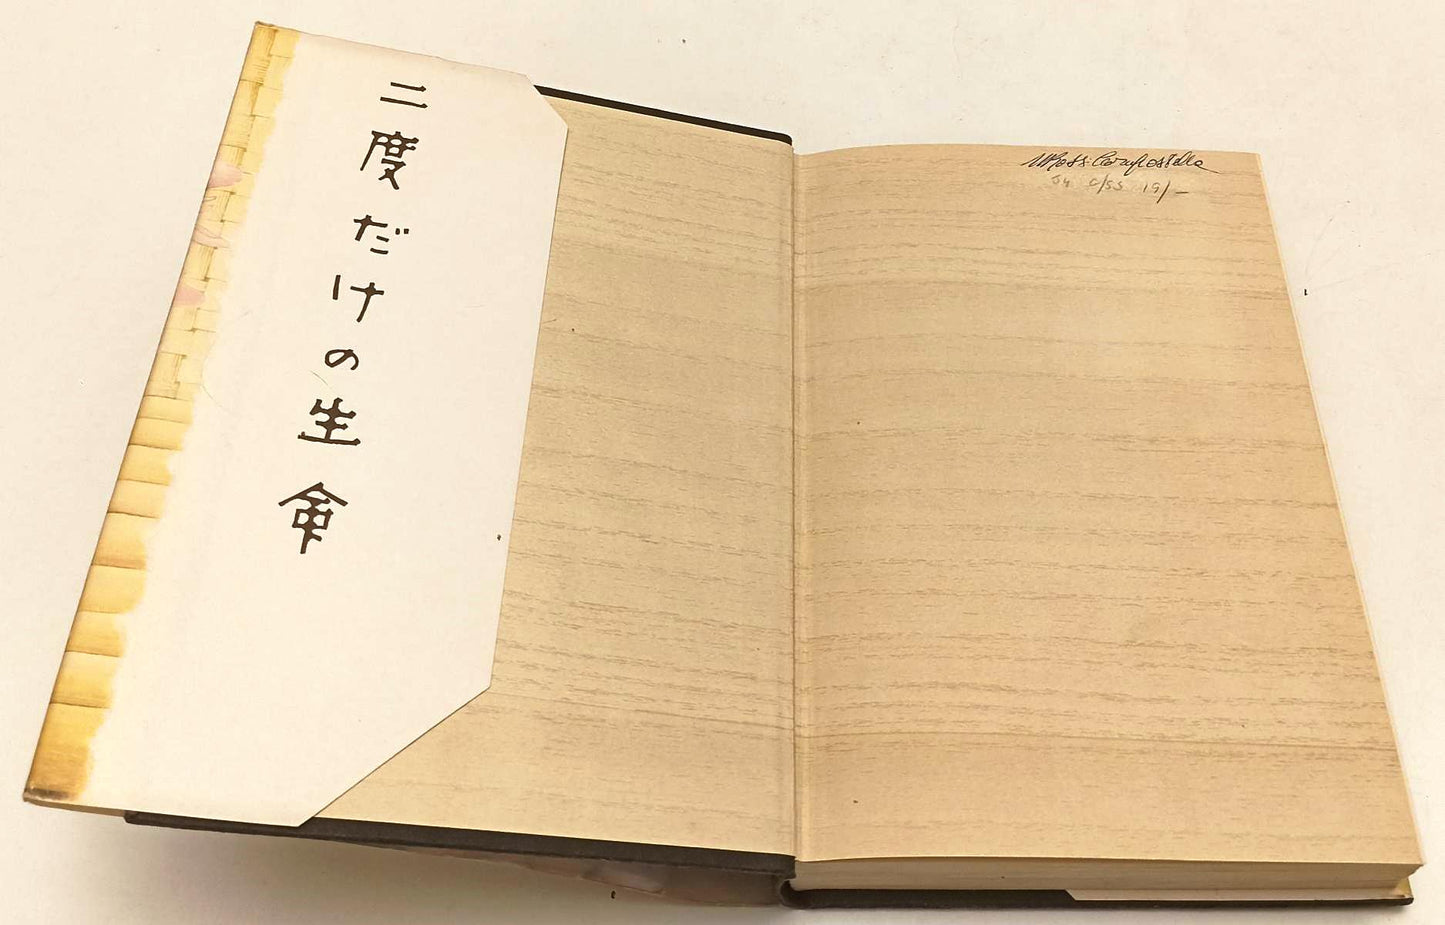 二度だけの生命
54 c/ss 19/-